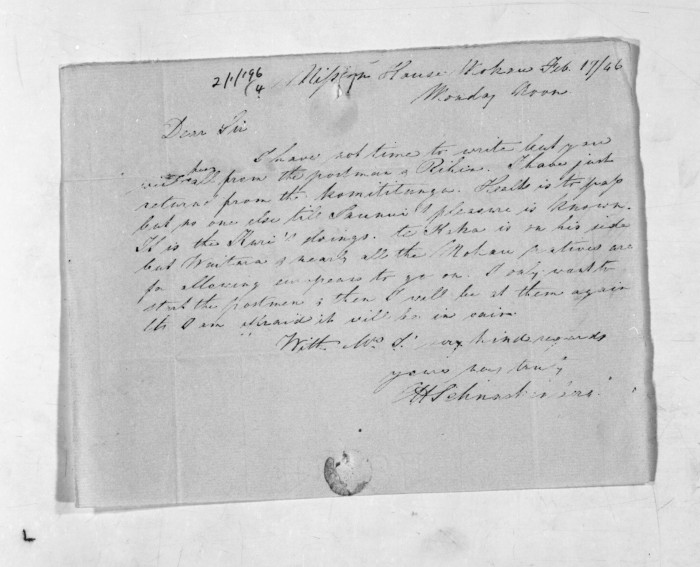 2/1/196
/4
Mission House Mokau Feb. 17/46
Monday Noon
Dear Sir
I have not time to write but you
will hear all from the postman & Rihia. I have just
returned from the Komititunga. Heale is to pass
but no one else till pleasure is known.
It is the Kari's doings. te Kaka is on his side
but Waitara & nearly all the Mokau natives are
for allowing to go on. I only want to
start the postmen & then I will be at them again
tho I am afraid it will be in vain.
With Mrs S.' very kind regards
yours very truly
CH Schnackenberg
L